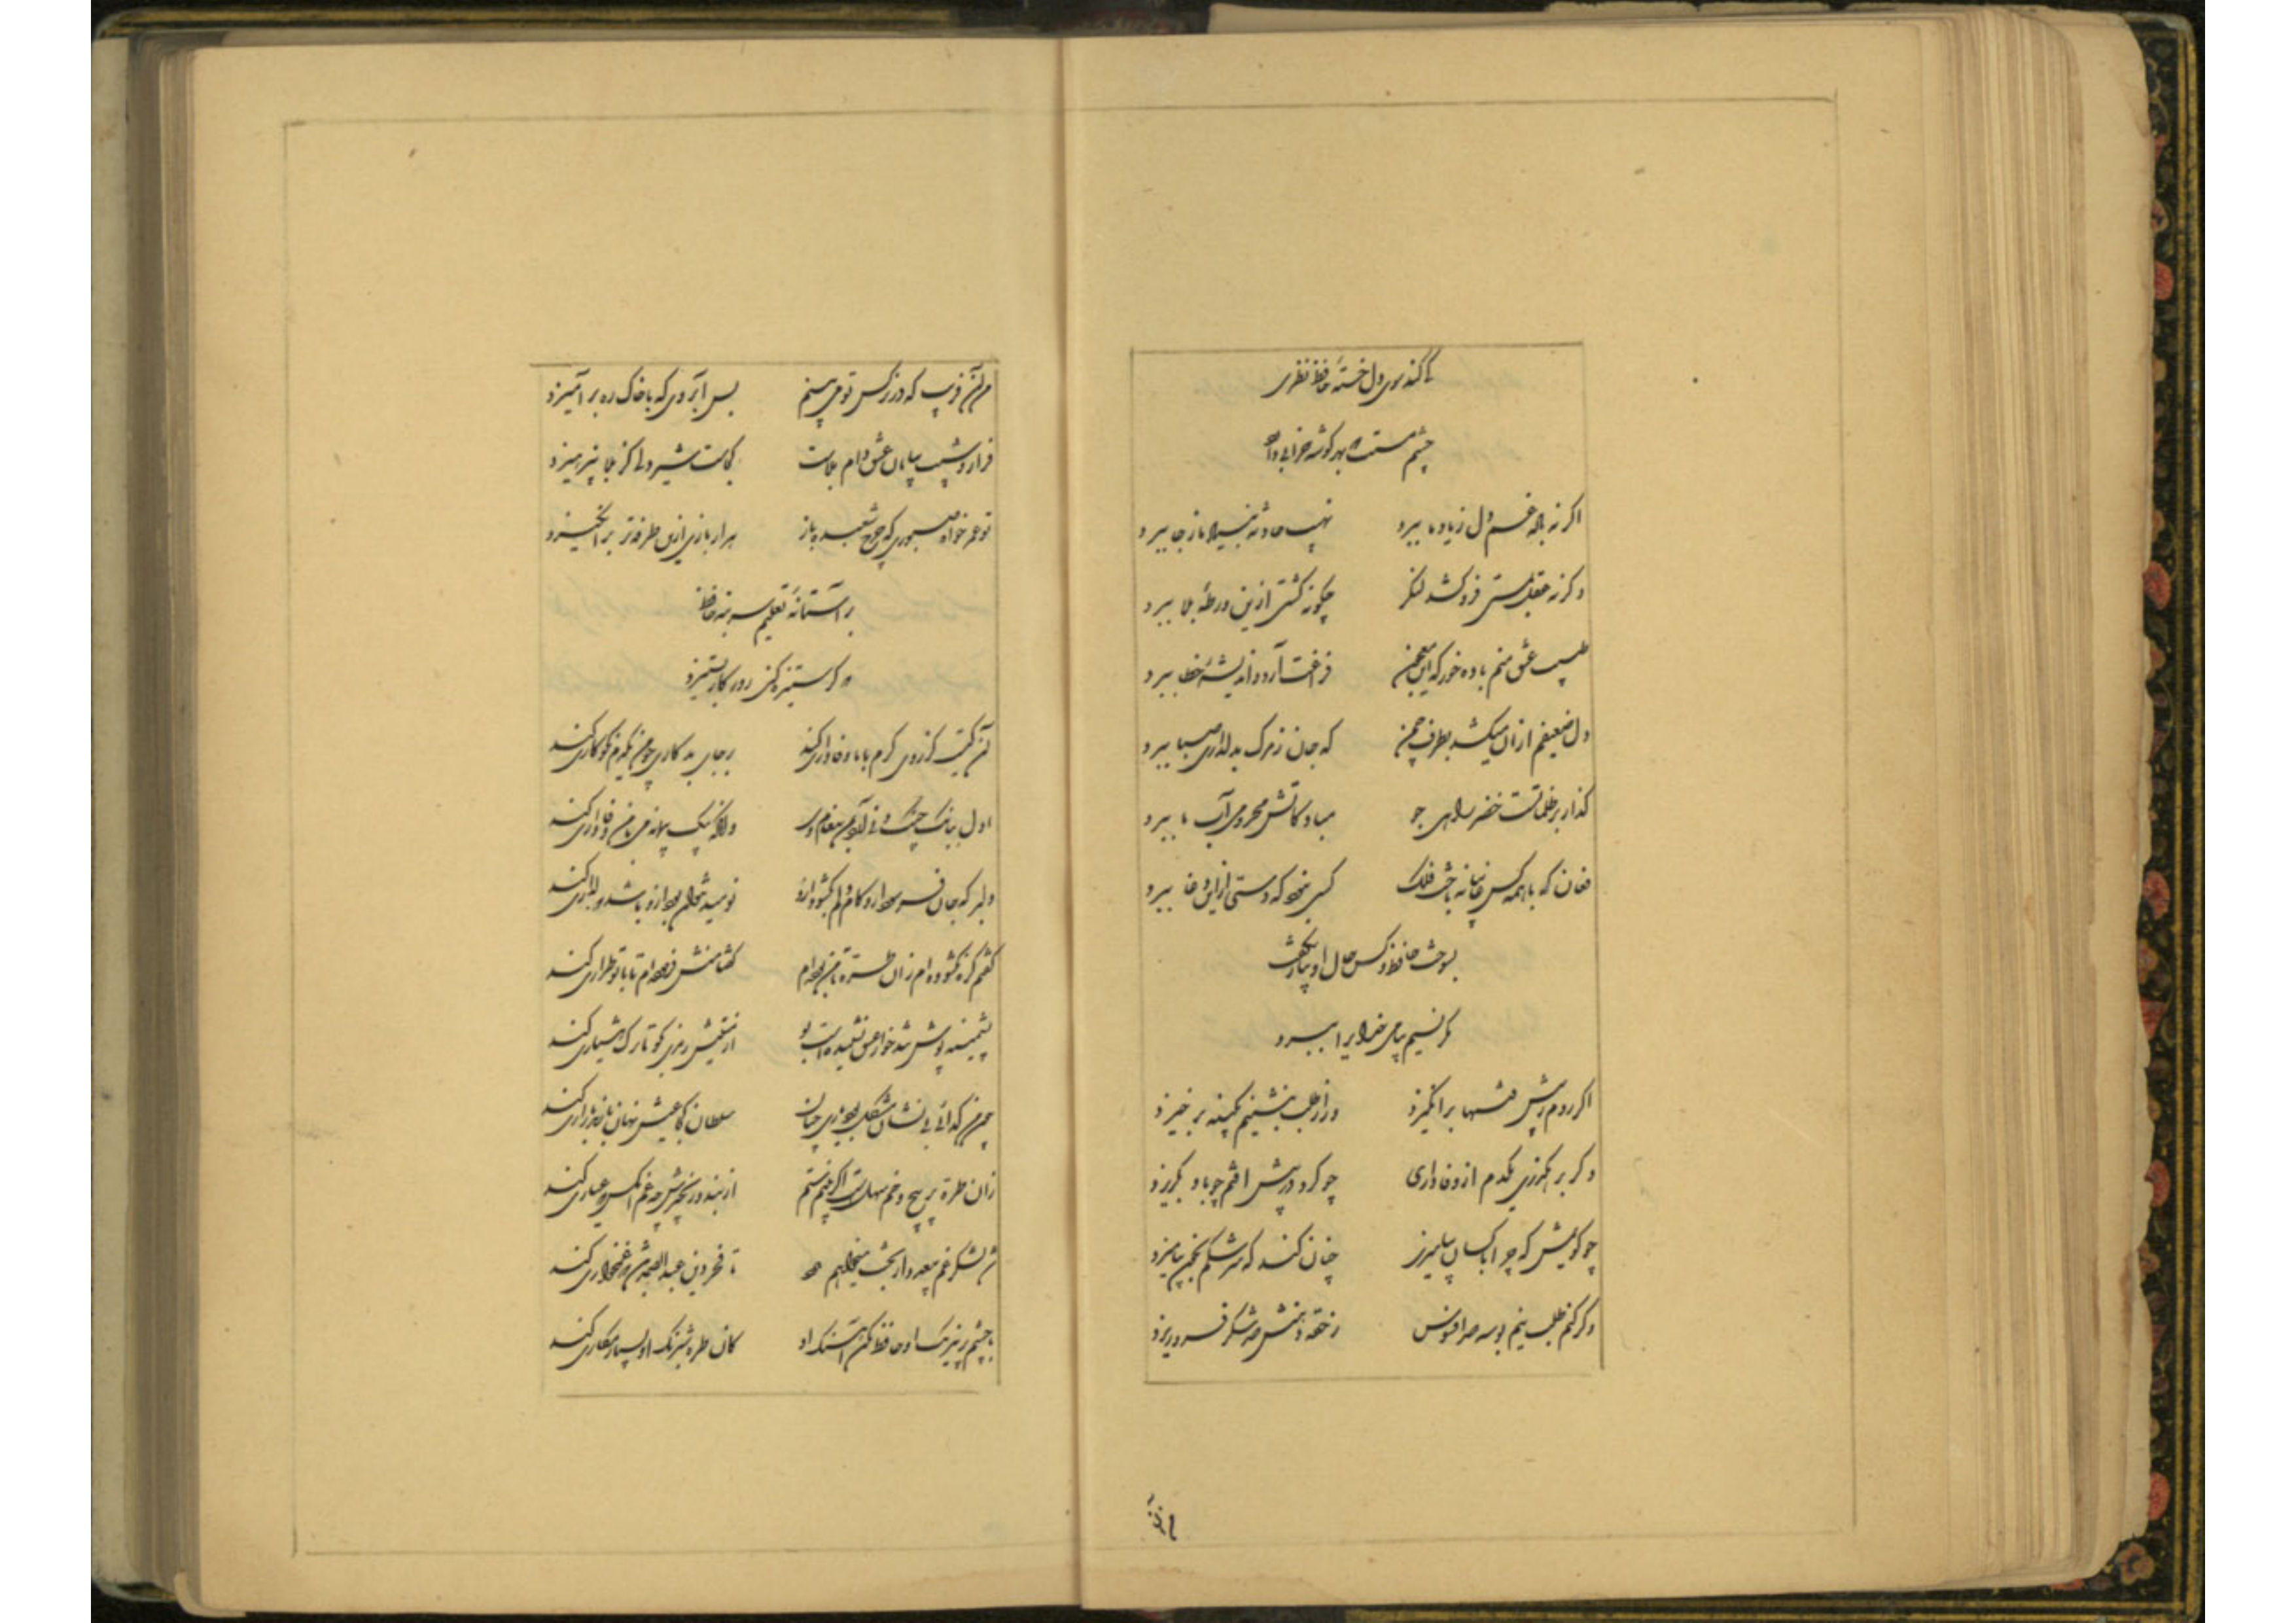 تا کند سوی دل خستهٔ حافظ نظری
چشم مستت بهر گوشه خرابی دارد
اگر نه باده غم دل ز یاد ما ببرد نهیب حادثه بنیاد ما ز جا ببرد
وگر نه عقل بمستی فرو کشد لنگر چگونه کشتی ازین ورطهٔ بلا ببرد
طبیب عشق منم باده خور که این معجون فراغت آرد و اندیشهٔ خطا ببرد
دل ضعیفم ازان میکشد بطرف چمن که جان ز مرگ به دلداری صبا ببرد
گذار بر ظلماتست خضر راهی جو مباد کاتش محرومی آب ما ببرد
فغان که با همه کس غایبانه باخت فلک کسی نبود که دستی ازین دغا ببرد
بسوخت حافظ و کس حال او بیار نگفت
مگر نسیم پیامی خدایرا ببرد
اگر روم ز پیش فتنها برانگیزد ور از طلب بنشینم بکینه برخیزد
وگر برهگذری یکدم از وفاداری چو گرد در پیش افتم چو باد بگریزد
چو گویمش که چرا با کسان بیامیزی چنان کند که سرشکم بخون بیامیزد
وگر کنم طلب نیم بوسه صد افسوس ز حقهٔ دهنش چون شکر فرو ریزد
من آن
من آن فریب که در نرگس تو می بینم بس آبروی که با خاک ره برآمیزد
فراز و شیب بیابان عشق دام بلاست کجاست شیر دلی کز بلا نپرهیزد
تو عمر خواه و صبوری که چرخ شعبده باز هزار بازی ازین طرفه تر برانگیزد
بر آستانهٔ تسلیم سر بنه حافظ
که گر ستیزه کنی روزگار بستیزد
آن کیست کز روی کرم با ما وفاداری کند بر جای بدکاری چو من یکدم نکوکاری کند
اول ببانگ چنگ و نی آرد بمن پیغام وی وانگه بیک پیمانه می با من وفاداری کند
دلبر که جان فرسود ازو کام دلم نگشود ازو نومید نتوان بود ازو باشد که دلداری کند
گفتم گره نگشوده ام زان طره تا من بوده ام گفتا منش فرموده ام تا با تو طراری کند
پشمینه پوش تند خو از عشق نشنیده است بو از مستیش رمزی بگو تا ترک هشیاری کند
چون من گدای بی نشان مشکل بود یاری چنان سلطان کجا عیش نهان با رند بازاری کند
زان طره پر پیچ و خم سهلست اگر بینم ستم از بند و زنجیرش چه غم آنکس که عیاری کند
شد لشکر غم بیعدد از بخت میخواهم مدد تا فخر دین عبدالصمد باشد که غمخواری کند
با چشم پر نیرنگ او حافظ مکن آهنگ او کان طره شبرنگ او بسیار مکاری کند